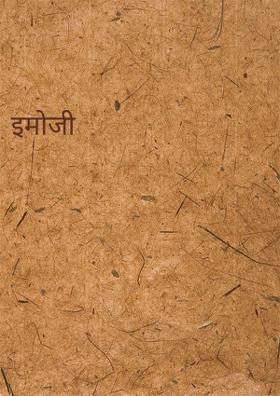 इमोजी